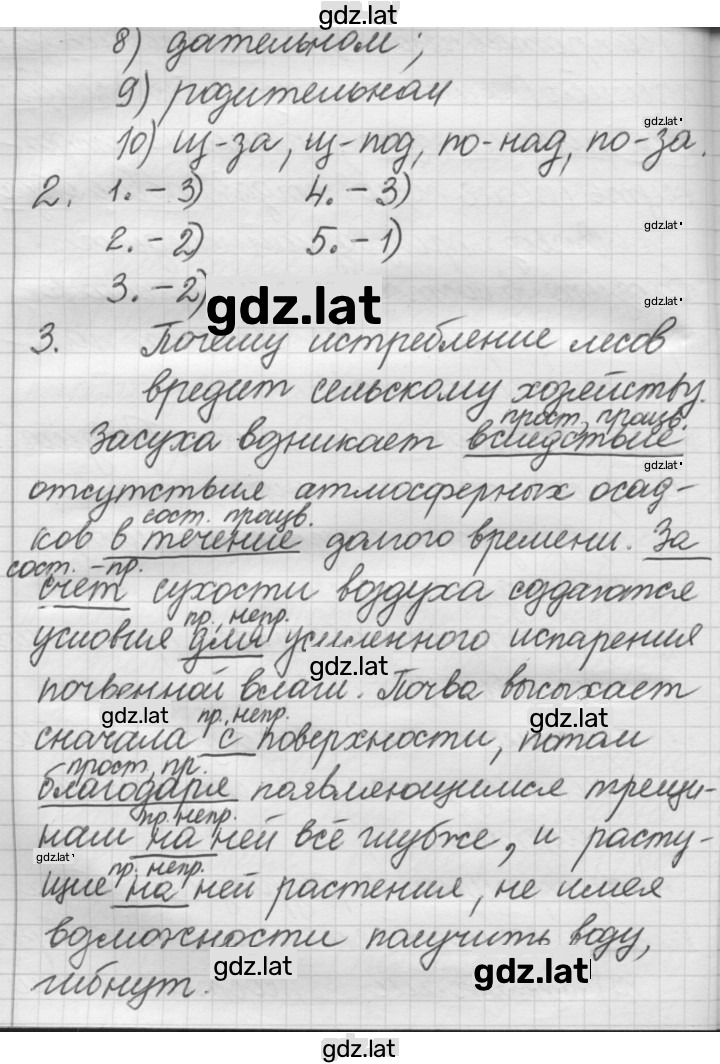 gdz.lat
8) дательном;
9) родительном
gdz.lat
10) из-за, из-под, по-над, по-за.
2. 1. - 3) 4. - 3)
2. - 2) 5. - 1)
gdz.lat
3. - 2)
gdz.lat
gdz.lat
3. Почему истребление лесов
вредит сельскому хозяйству.
прост, произв.
Засуха возникает вследствие
gdz.lat
отсутствия атмосферных осад-
сост. произв.
ков в течение долгого времени. За
сост. - пр.
счет сухости воздуха создаются
пр, непр.
условия для усиленного испарения
gdz.lat
почвенной влаги. Почва высыхает
gdz.lat
gdz.lat
пр, непр.
сначала с поверхности, потом
прост, пр.
благодаря появляющимся трещи-
пр. непр.
нам на ней всё глубже, и расту-
gdz.lat
пр, непр.
щие на ней растения, не имея
возможности получить воду,
gdz.lat
gdz.lat
гибнут.
gdz.lat